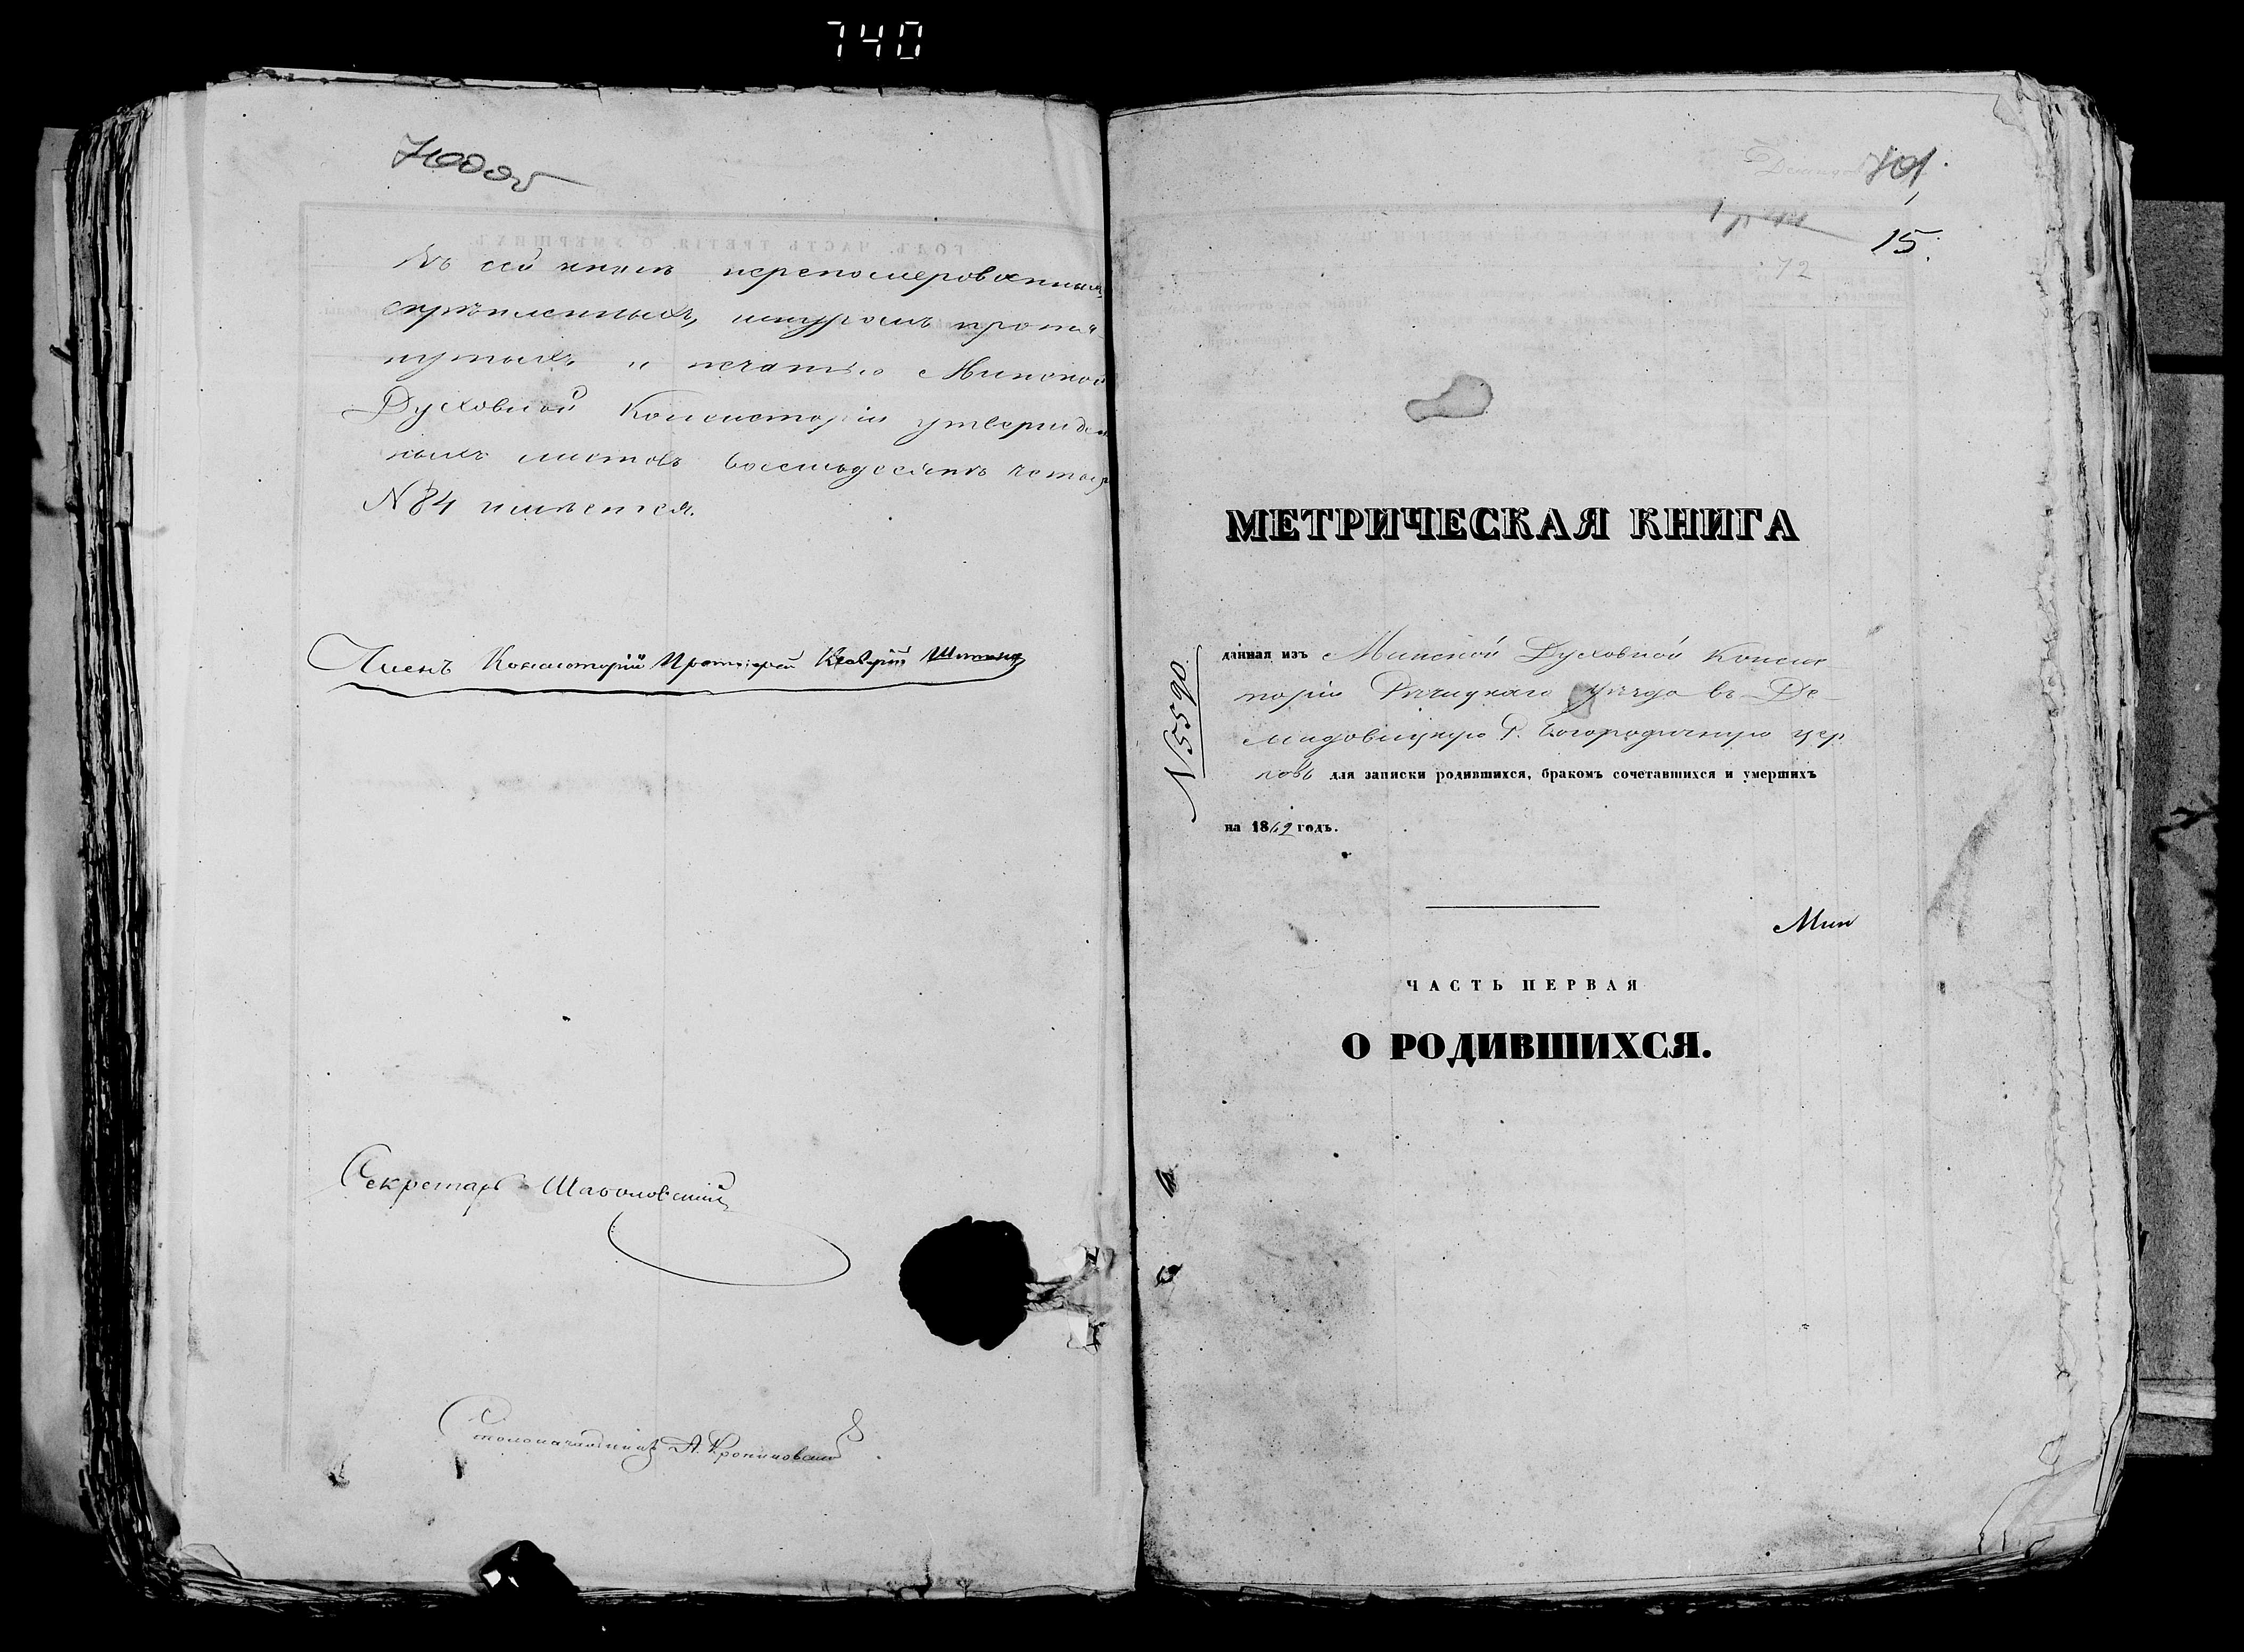 740
700 об
Въ сей книгѣ перенумерованныхъ,
скрѣпленныхъ, шнуромъ протя-
нутыхъ и печатью Минской
Духовной Консисторіи утвержден
ныхъ листовъ восемьдесятъ четыр
N 84 имѣется.
Членъ Консисторіи Протоіерей
Секретарь
Столоначальникъ А.
701
15.
72
МЕТРИЧЕСКАЯ КНИГА
N 5590
данная изъ Минской Духовной Консис
торіи Рѣчицкаго уѣзда въ Де-
мидовицкую Р. Богородичную цер
ковь для записки родившихся, бракомъ сочетавшихся и умершихъ
на 1862 годъ.
Мин
ЧАСТЬ ПЕРВАЯ
О РОДИВШИХСЯ.